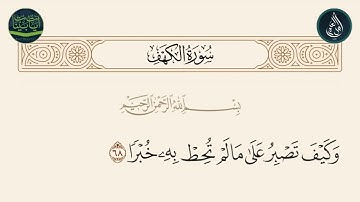 سُورَةُ الكَهْفِ
بِسْمِ اللَّهِ الرَّحْمَٰنِ الرَّحِيمِ
وَكَيْفَ تَصْبِرُ عَلَىٰ مَا لَمْ تُحِطْ بِهِۦ خُبْرًا ٦٨